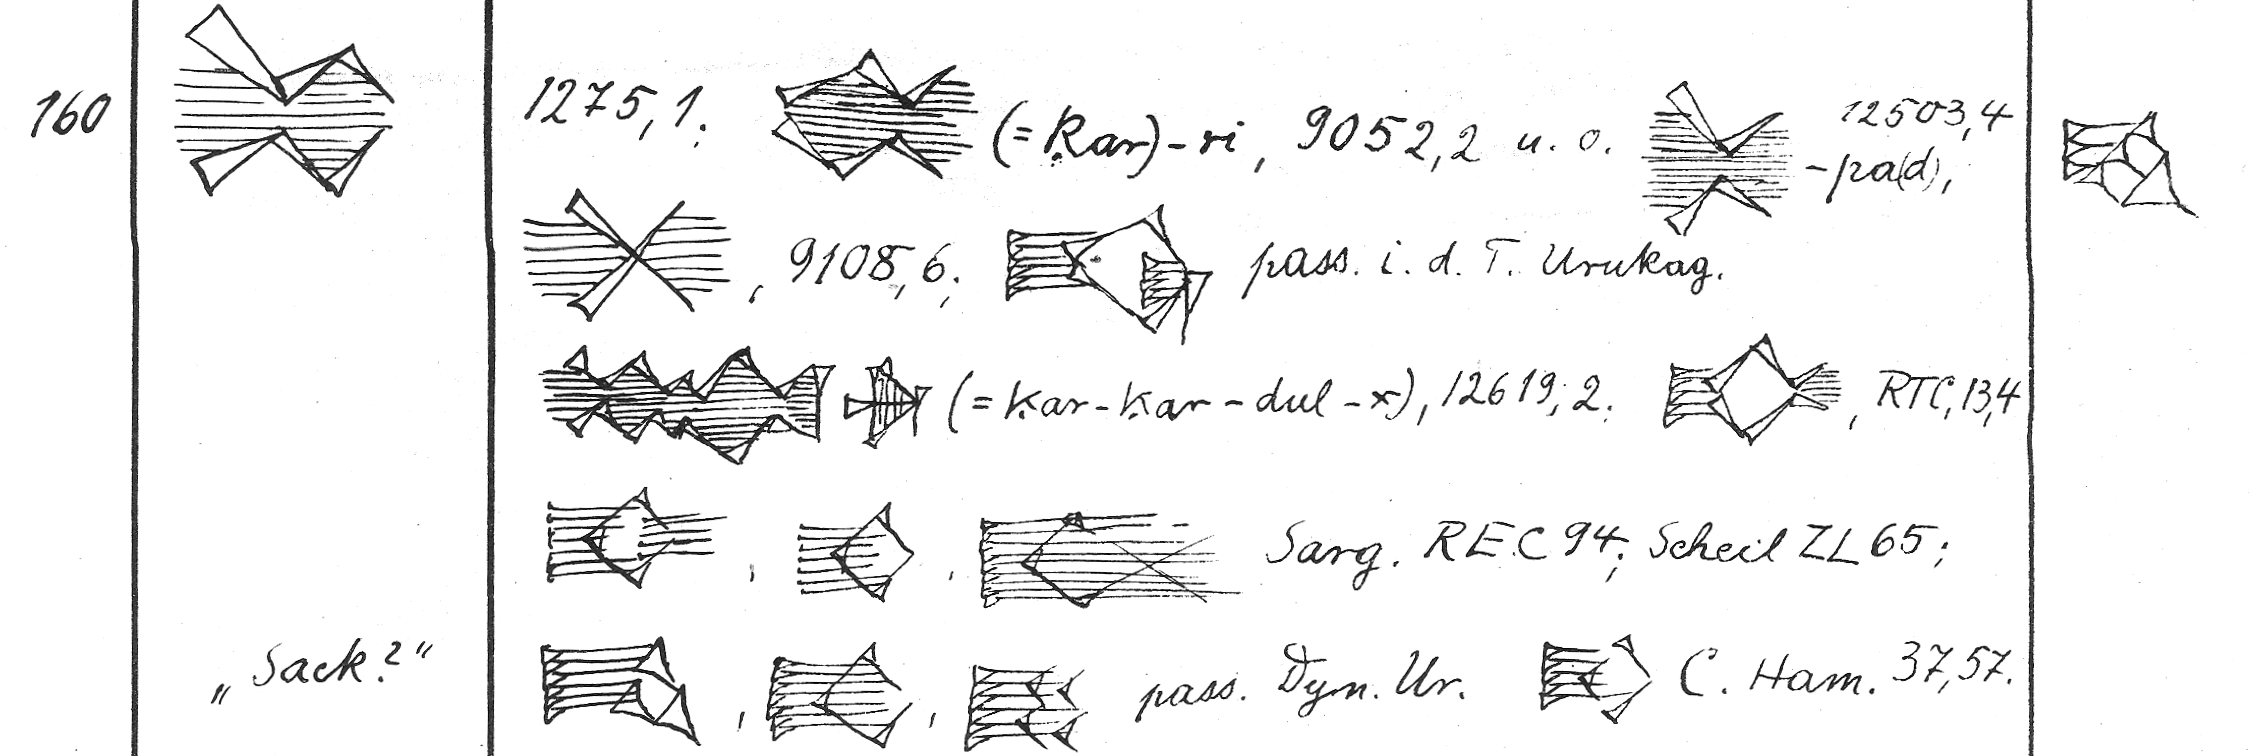 160 1275,1. (= Kar)-ri, 9052,2 u. o. 12503,4
-pa(d),
, 9108,6; pass. i. d. T. Urukag.
(= Kar-kar-dul-x), 12619,2. , RTC, 13,4
, , Sarg. REC 94; Scheil ZL 65;
„Sack?“ , , pass. Dyn. Ur. C. Ham. 37,57.